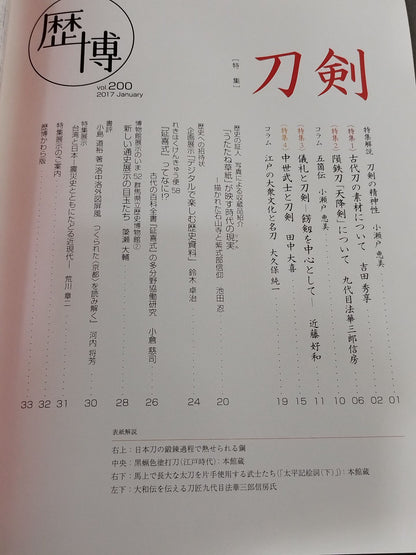 歴博
vol.200
2017 January
[特集]
刀剣
特集解説 刀剣の精神性 小瀬戸 恵美 01
[特集1] 古代刀の素材について 吉田 秀享 02
[特集2] 隕鉄刀「天降剣」について 九代目法華三郎信房 06
コラム 五箇伝 小瀬戸 恵美 10
[特集3] 儀礼と刀剣 餝剱を中心として― 近藤 好和 11
[特集4] 中世武士と刀剣 田中 大喜 15
コラム 江戸の大衆文化と名刀 大久保 純一 19
歴史の証人 写真による収蔵品紹介
「うたたね草紙」が映す時代の現実
―描かれた石山寺と紫式部信仰 池田 忍 20
歴史への招待状
企画展示「デジタルで楽しむ歴史資料」 鈴木 卓治 24
れきはくけんきゅう便 58
『延喜式』ってなに!?
古代の百科全書『延喜式』の多分野協働研究 小倉 慈司 26
博物館展示のいま 群馬県立歴史博物館②
新しい通史展示の目玉たち 簗瀬 大輔 28
書評
小島 道裕 著『洛中洛外図屏風 つくられた〈京都〉を読み解く』 河内 将芳 30
特集展示
台湾と日本―震災史とともにたどる近現代― 荒川 章二 31
特集展示のご案内 32
歴博かわら版 33
表紙解説
右上:日本刀の鍛錬過程で熱せられる鋼
中央:黒蝋色塗打刀(江戸時代):本館蔵
右下:馬上で長大な太刀を片手使用する武士たち(『太平記絵詞(下)』:本館蔵
左下:大和伝を伝える刀匠九代目法華三郎信房氏